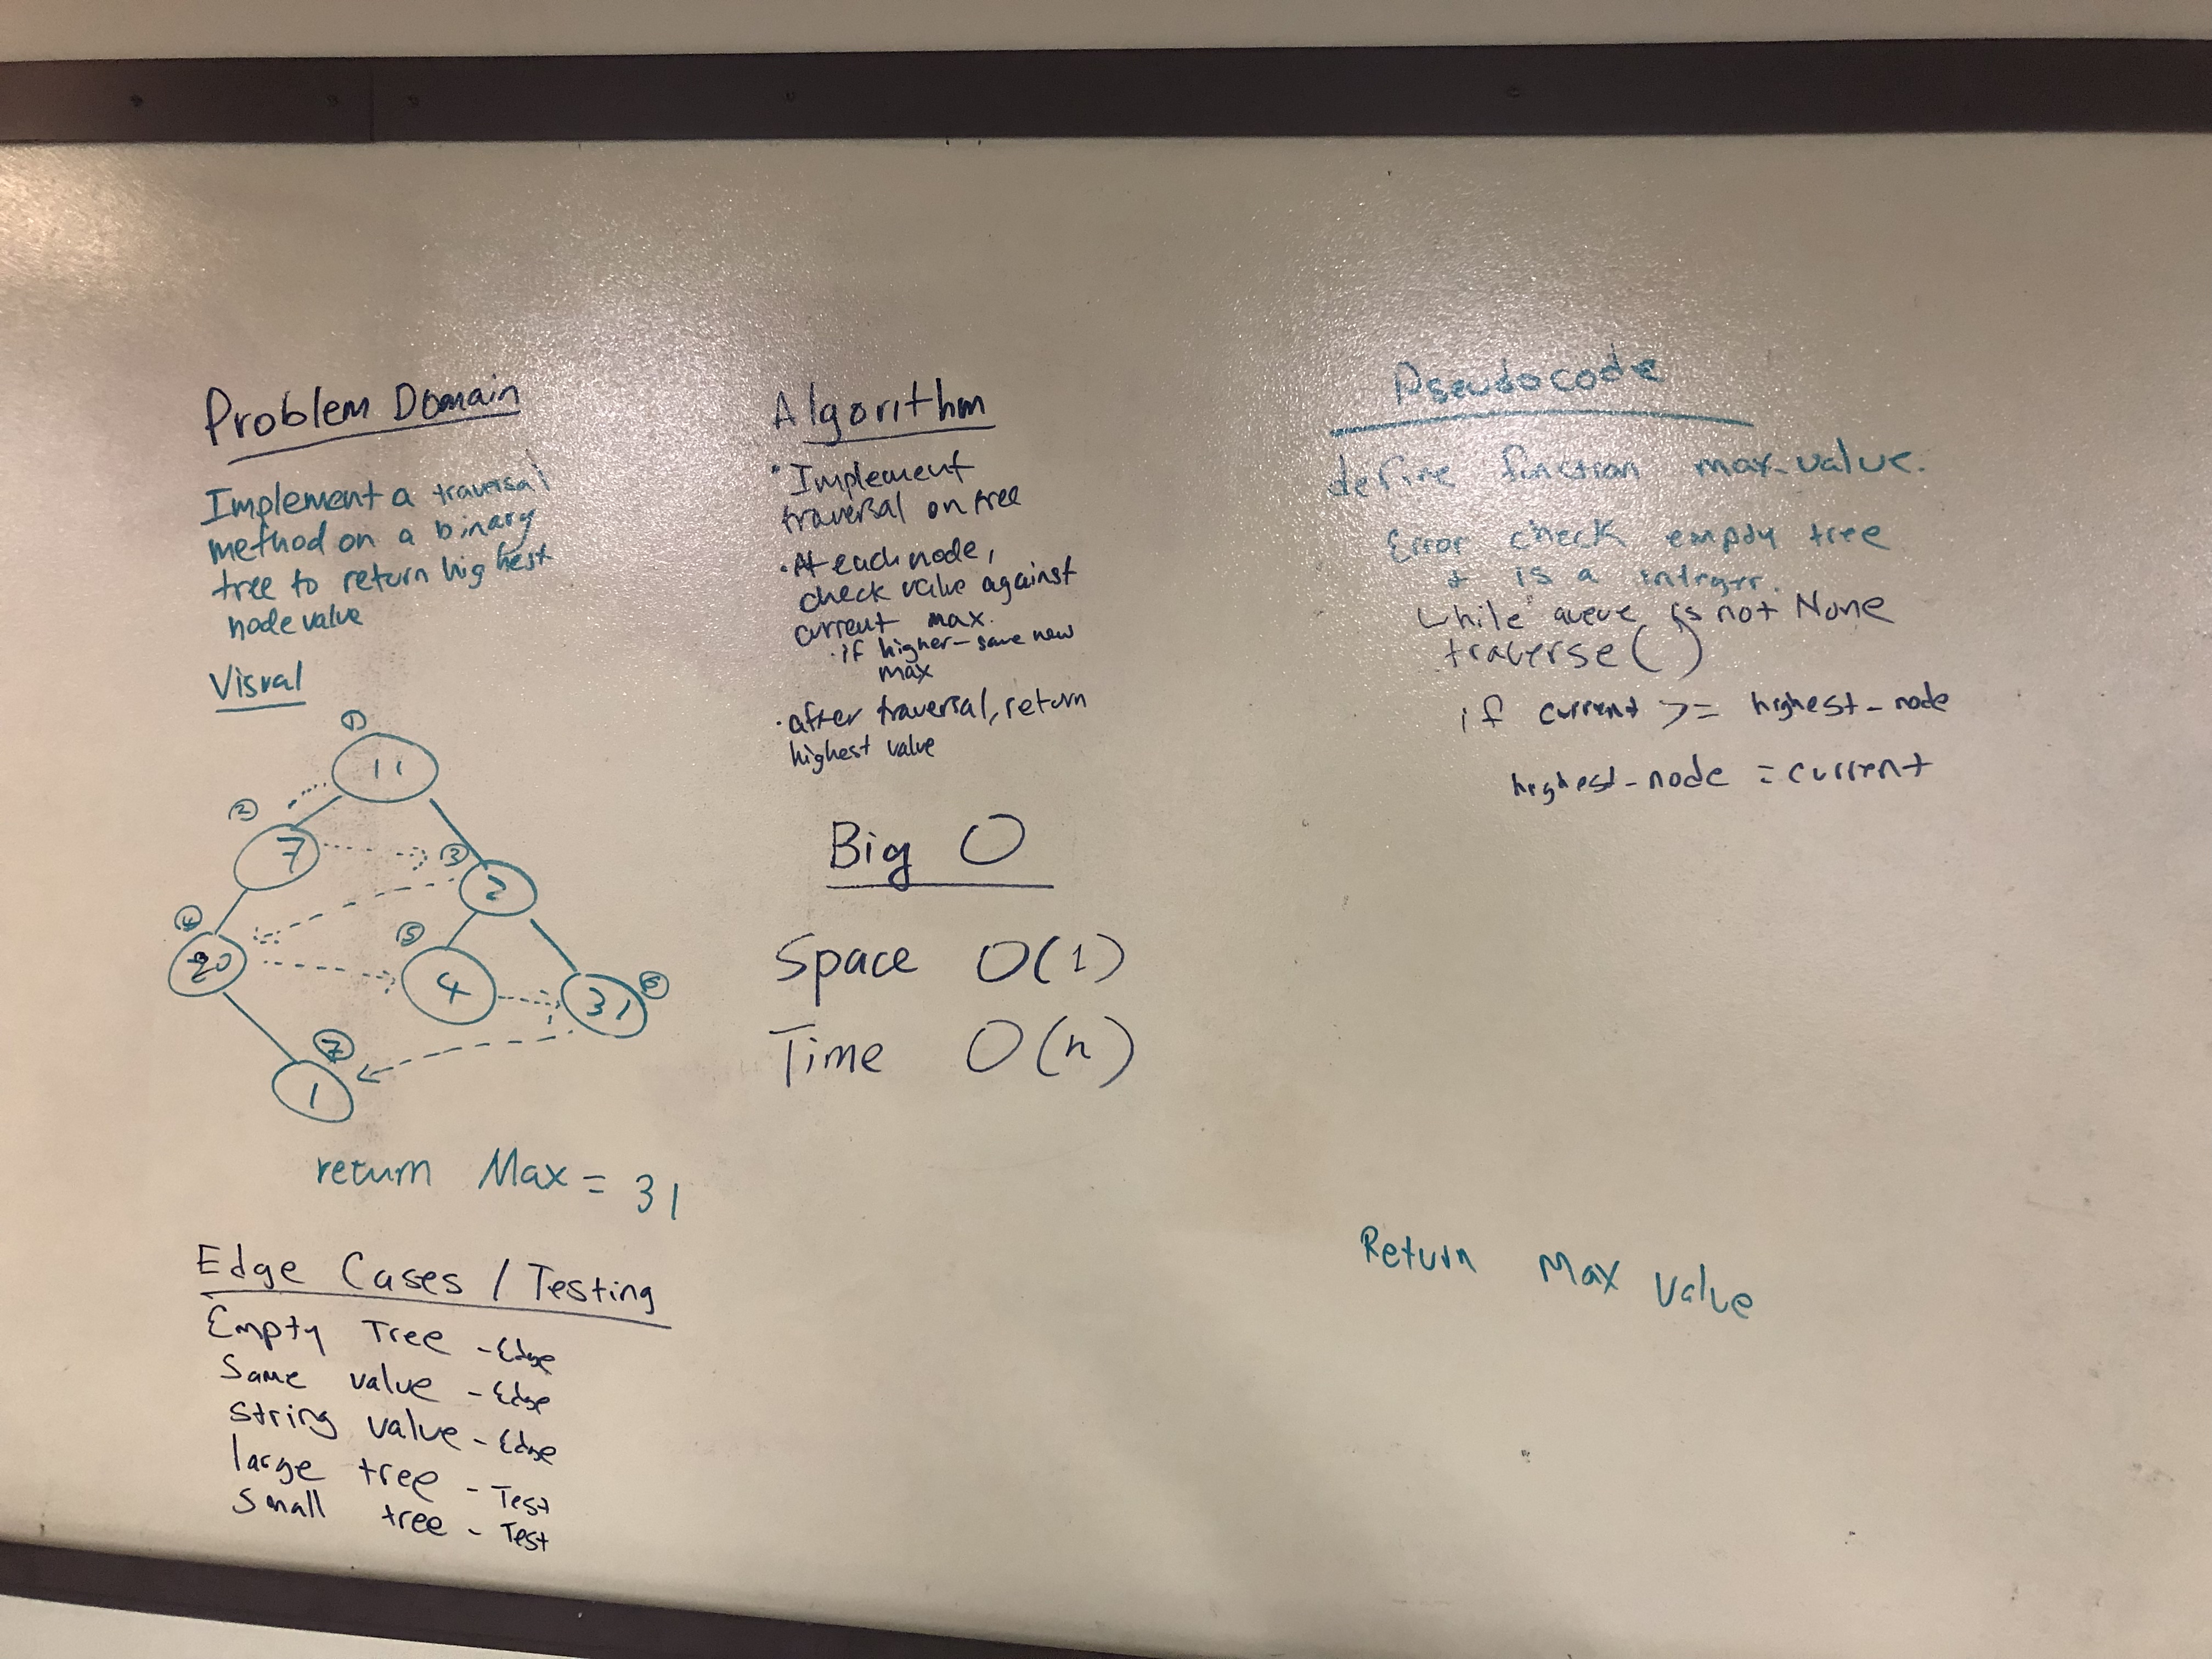 Problem Domain
Implement a traversal
method on a binary
tree to return highest
node value
Visual
1
11
2
7
3
2
4
20
5
4
6
31
7
1
return Max = 31
Edge Cases / Testing
Empty Tree - Edge
Same value - Edge
string value - Edge
large tree - Test
small tree - Test
Algorithm
• Implement
traversal on tree
• At each node,
check value against
current max.
• if higher - save new
max
• after traversal, return
highest value
Big O
Space O(1)
Time O(n)
Pseudocode
define function max_value.
Error check empty tree
+ is a integer.
while queue is not None
traverse()
if current >= highest_node
highest_node = current
Return Max Value